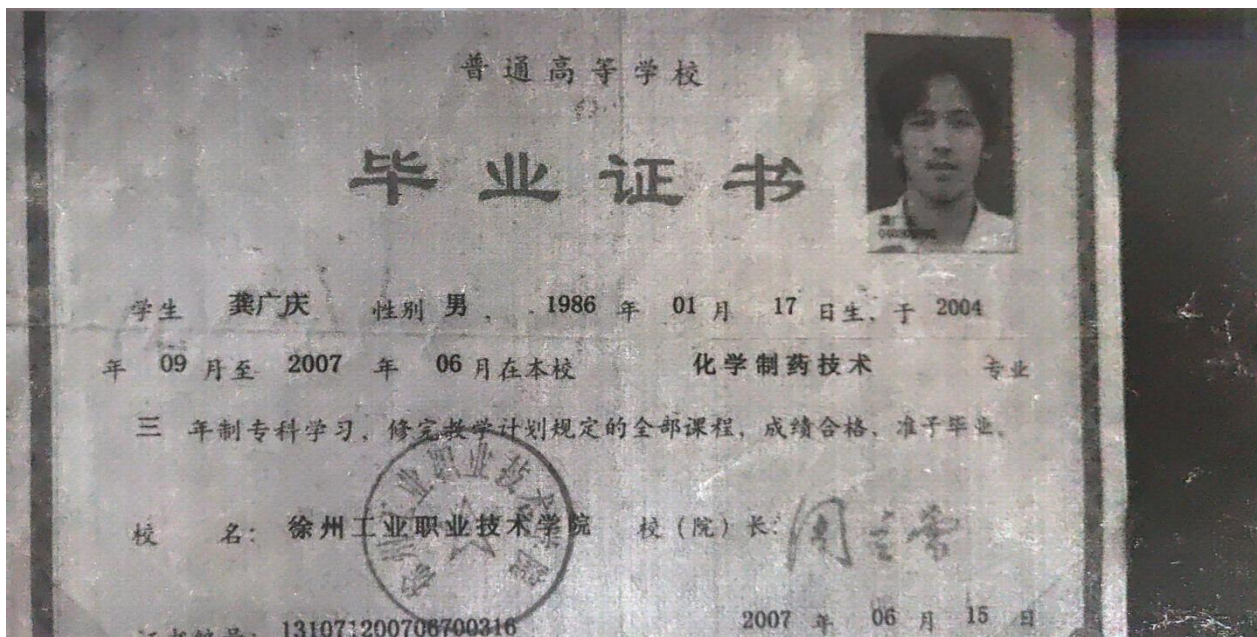 普通高等学校
毕业证书
学生 龚广庆 性别 男, 1986 年 01 月 17 日生, 于 2004
年 09 月至 2007 年 06 月在本校 化学制药技术 专业
三 年制专科学习, 修完教学计划规定的全部课程, 成绩合格, 准予毕业。
校 名: 徐州工业职业技术学院 校(院)长:
徐州工业职业技术学院
证书编号: 131071200706700316 2007 年 06 月 15 日